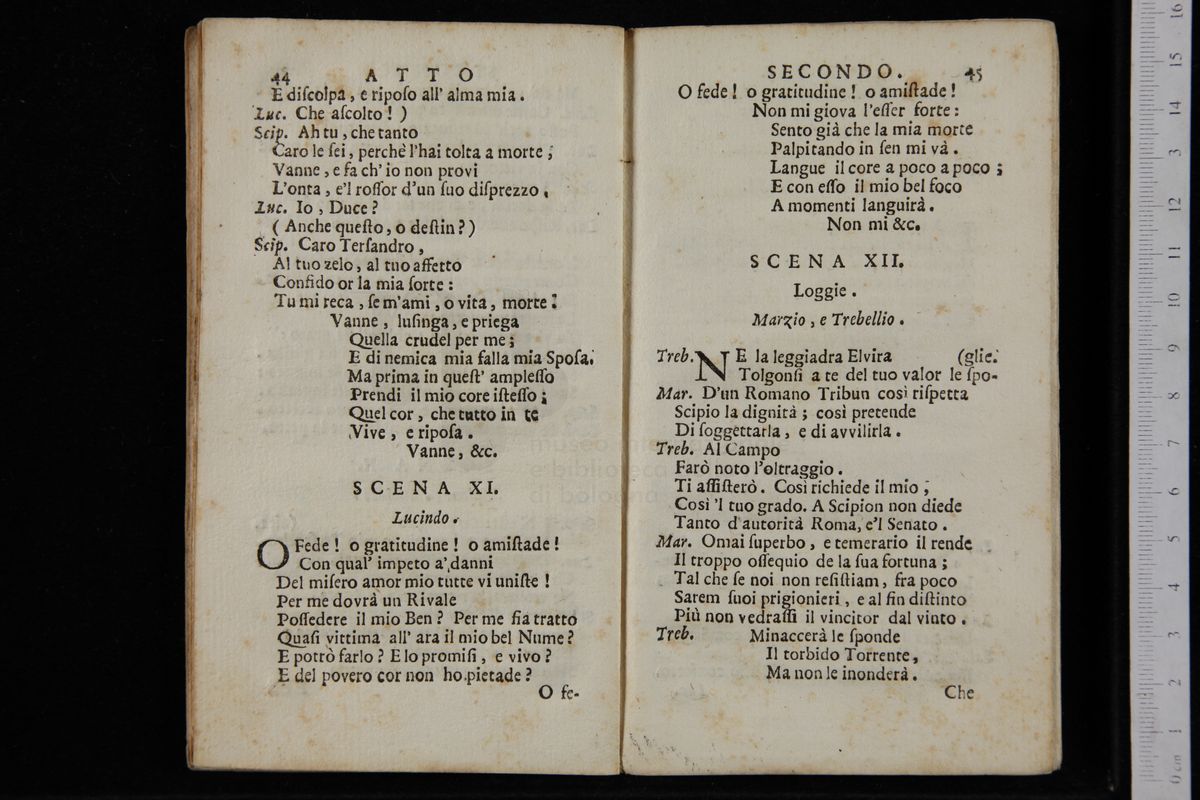 44 ATTO
E diſcolpa, e ripoſo all' alma mia.
Luc. Che aſcolto! )
Scip. Ah tu, che tanto
Caro le ſei, perchè l'hai tolta a morte;
Vanne, e fa ch' io non provi
L'onta, e'l roſſor d'un ſuo diſprezzo.
Luc. Io, Duce?
( Anche queſto, o deſtin? )
Scip. Caro Terſandro,
Al tuo zelo, al tuo affetto
Confido or la mia ſorte:
Tu mi reca, ſe m'ami, o vita, morte.
Vanne, luſinga, e priega
Quella crudel per me;
E di nemica mia falla mia Spoſa.
Ma prima in queſt' ampleſſo
Prendi il mio core iſteſſo;
Quel cor, che tutto in te
Vive, e ripoſa.
Vanne, &c.
SCENA XI.
Lucindo.
O Fede! o gratitudine! o amiſtade!
Con qual' impeto a' danni
Del miſero amor mio tutte vi uniſte!
Per me dovrà un Rivale
Poſſedere il mio Ben? Per me ſia tratto
Quaſi vittima all' ara il mio bel Nume?
E potrò farlo? E lo promiſi, e vivo?
E del povero cor non ho pietade?
O fe-
SECONDO. 45
O fede! o gratitudine! o amiſtade!
Non mi giova l'eſſer forte:
Sento già che la mia morte
Palpitando in ſen mi và.
Langue il core a poco a poco;
E con eſſo il mio bel foco
A momenti languirà.
Non mi &c.
SCENA XII.
Loggie.
Marzio, e Trebellio.
Treb. NE la leggiadra Elvira (glie.
Tolgonſi a te del tuo valor le ſpo-
Mar. D'un Romano Tribun così riſpetta
Scipio la dignità; così pretende
Di ſoggettarla, e di avvilirla.
Treb. Al Campo
Farò noto l'oltraggio.
Ti aſſiſterò. Così richiede il mio,
Così 'l tuo grado. A Scipion non diede
Tanto d'autorità Roma, e'l Senato.
Mar. Omai ſuperbo, e temerario il rende
Il troppo oſſequio de la ſua fortuna;
Tal che ſe noi non reſiſtiam, fra poco
Sarem ſuoi prigionieri, e al fin diſtinto
Più non vedraſſi il vincitor dal vinto.
Treb. Minaccerà le ſponde
Il torbido Torrente,
Ma non le inonderà.
Che